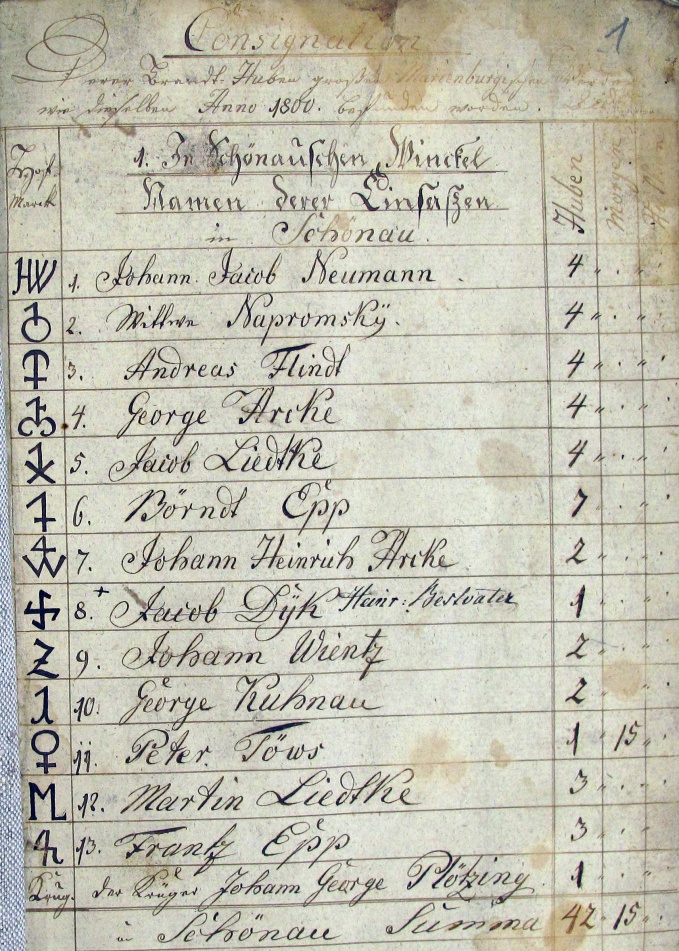 1
Consignation
Derer Brandt-Huben großen Marienburgischen
wie dieselben Anno 1800. befunden worden.
Hoff-
Marck
1. In Schönauschen Winckel
Namen derer Einsaßen
in Schönau.
Huben
Morgen
HW 1. Johann Jacob Neumann 4
2. Wittwe Napromskÿ. 4
3. Andreas Flindt 4
4. George Arcke 4
5. Jacob Liedtke 4
6. Börndt Epp 7
7. Johann Heinrich Arcke 2
8. + Jacob Dÿk Heinr: Bestvater 1
9. Johann Wientz 2
10. George Kuhnau 2
11. Peter Töws 1 15
12. Martin Liedtke 3
13. Frantz Epp 3
Krug. der Krüger Johann George Plötzing 1
in Schönau Summa 42 15